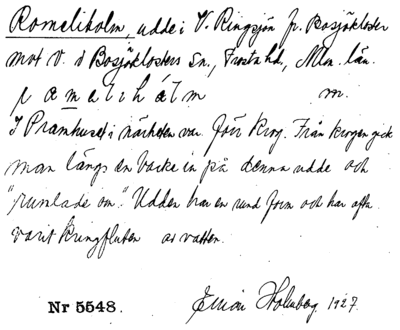 Romeliholm, udde i V. Ringsjön fr. Bosjökloster
mot V. i Bosjöklosters Sn., Frosta hd., Mlm. län.
r a m e l i h á l m m.
I Pramhuset i närheten var förr krog. Från krogen gick
man längs en backe in på denna udde och
"rumlade om." Udden har en rund form och har ofta
varit kringfluten av vatten.
Nr 5548. Holmberg 1927.